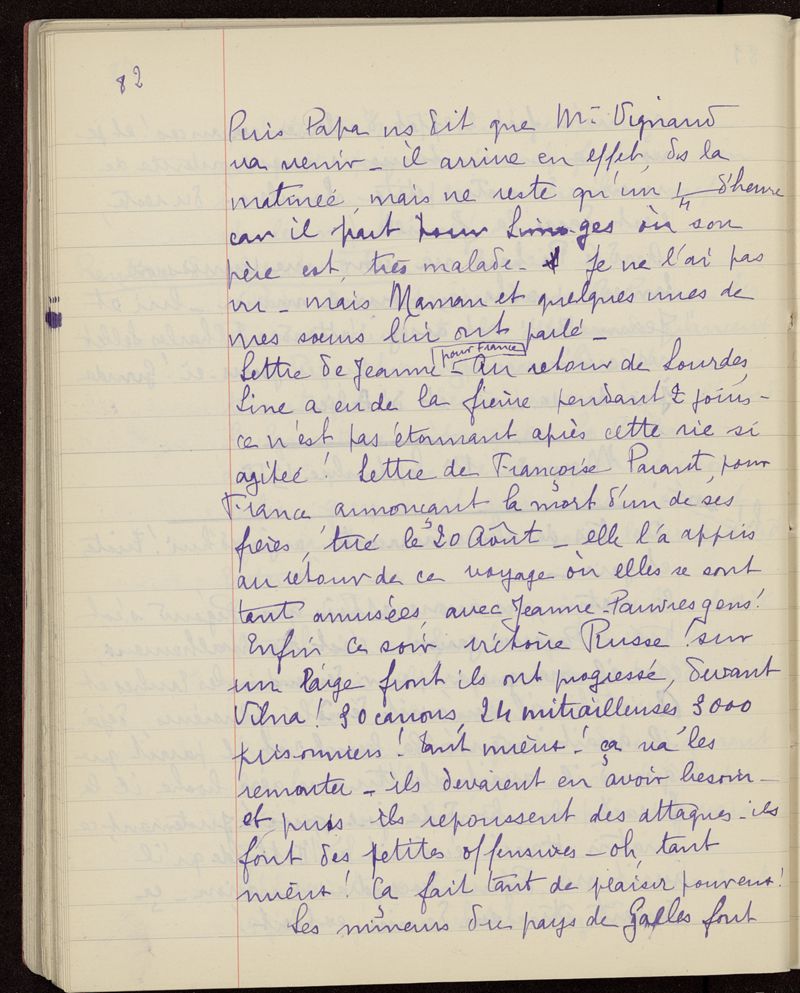 82
Puis Papa ns dit que Mr Vignaud
va venir - il arrive en effet, ds la
matineé, mais ne reste qu'un 1/4 d'heure
car il part pour Limoges où son
père est très malade - Je ne l'ai pas
vu - mais Maman et quelques unes de
mes sœurs lui ont parlé -
pour France
Lettre de Jeanne - Au retour de Lourdes,
Line a eu de la fièvre pendant 2 jours -
ce n'est pas étonnant après cette vie si
agiteé ! Lettre de Françoise Parant, pour
France, annonçant la mort d'un de ses
frères, tué le 20 Août - elle l'a appris
au retour de ce voyage où elles se sont
tant amusées, avec Jeanne - Pauvres gens !
Enfin ce soir victoire Russe ! sur
un large front ils ont progressé, devant
Vilna ! 30 canons, 24 mitrailleuses 3000
prisonniers ! Tant mieux ! ça va les
remonter - ils devaient en avoir besoin -
et puis ils repoussent des attaques - ils
font des petites offensives - oh, tant
mieux ! Ça fait tant de plaisir
Les mineurs du pays de Galles font